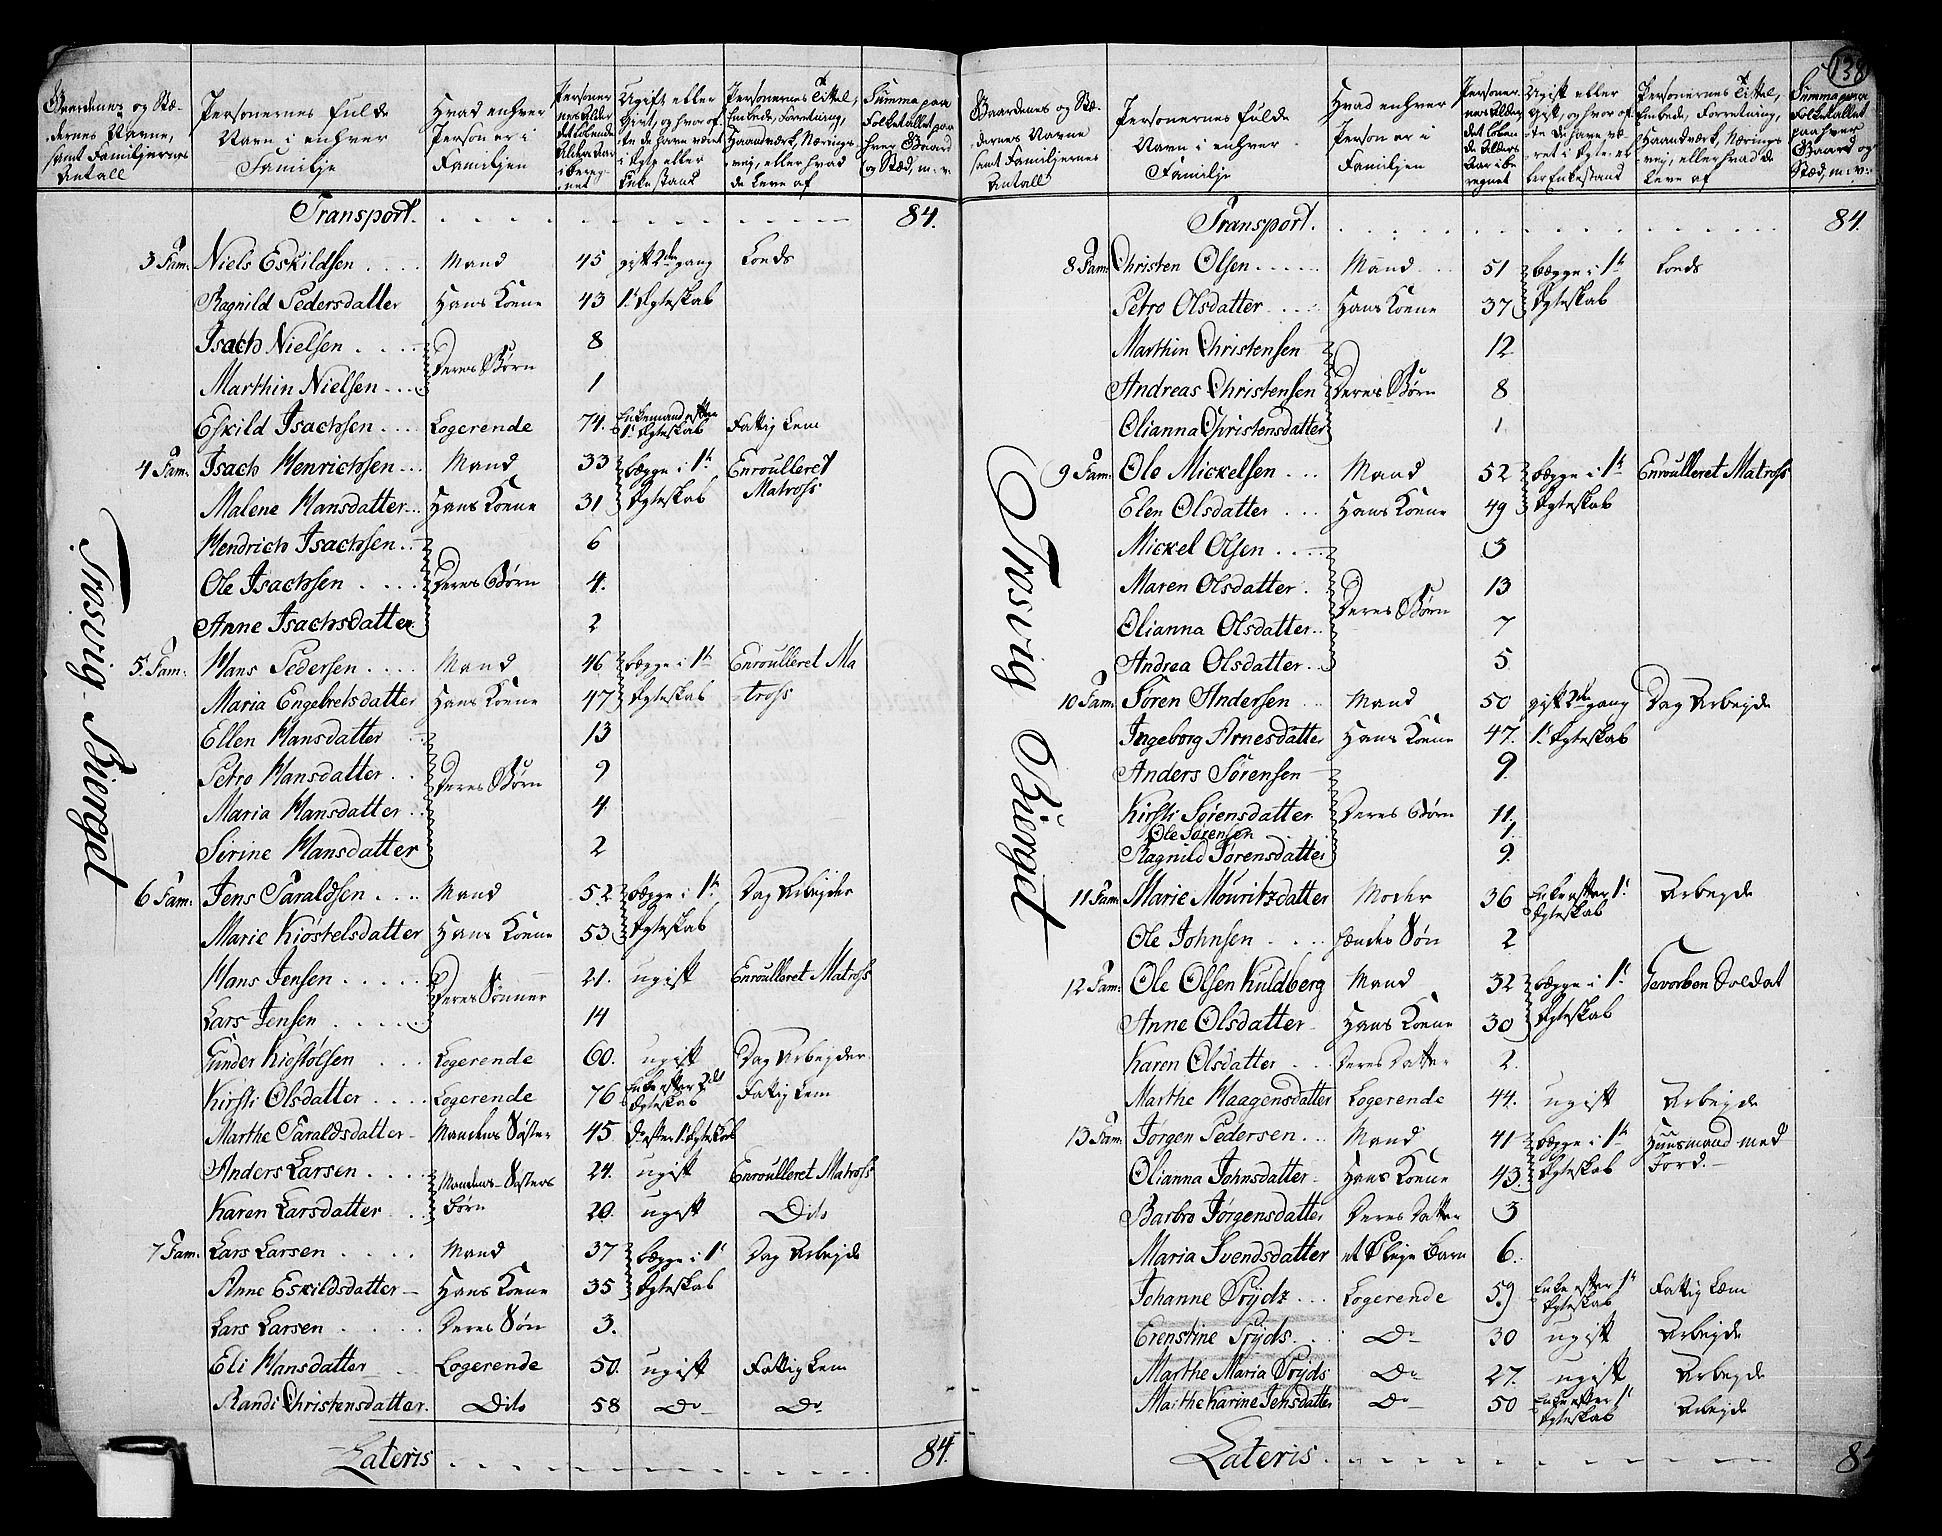 Gaardenes og Stæ-
dernes Navne,
samt Familjernes
Antall
Personernes fulde
Navn i enhver
Familje
Hvad enhver
Person er i
Familjen
Personer
nes Alder
det løbende
Alders Aar
ibereg-
net
Ugift eller
Givt, og hvor of-
te de have været
i Ægte eller
Enkestand
Personernes Tittel,
Embede, Forretning,
Haandværk, Nærings-
vej, eller hvad
de leve af
Summa paa
Folketallet paa
hver Gaard
og Stæd, m: v:
Transport. 84.
Trosvig Bierget
3 Fam: Niels Eskildsen Mand 45 gift 2den gang Lods
Ragnild Pedersdatter Hans Kone 43 1t Ægteskab
Isach Nielsen 8
Deres Børn
Marthin Nielsen 1
Eskild Isachsen Logerende 74. Enkemand efter 1t Ægteskab Fattig Lem
4 Fam: Isach Henrichsen Mand 33 begge i 1te Enroulleret
Malene Hansdatter Hans Kone 31 Ægteskab Matross
Hendrich Isachsen 6
Ole Isachsen Deres Børn 4.
Anne Isachsdatter 2
5. Fam: Hans Pedersen Mand 46 begge i 1te Enroulleret Ma
Maria Engebretsdatter Hans Kone 47 Ægteskab -tross
Ellen Hansdatter 13
Petro Hansdatter 9
Deres Børn
Maria Hansdatter 4
Sirine Hansdatter 2
6 Fam: Jens Taraldsen Mand 52 begge i 1te Dag Arbejder
Marie Kiøstelsdatter Hans Kone 53 Ægteskab
Hans Jensen 21. ugift Enroulleret Matross
Deres Sønner
Lars Jensen 14
Gunder Kiostolsen Logerende 60. ugift Dag Arbejder
Kirsti Olsdatter Logerende 76 Enke efter 2det Ægteskab Fattig Lem
Marthe Taraldsdatter Mandens Søster 45 Do efter 1t Ægteskab
Anders Larsen 24. ugift Enroulleret Matross
Mandens Søsters Børn
Karen Larsdatter 20. ugift Dito
7 Fam: Lars Larsen Mand 37 begge i 1t Dag Arbejde
Anne Eskildsdatter Hans Kone 35 Ægteskab
Lars Larsen Deres Søn 3.
Eli Hansdatter Logerende 50. ugift Fattig Lem
Randi Christensdatter. Dito 58 Do Do
Lateris 84.
138
Gaardenes og Stæ-
dernes Navne
samt Familjernes
Antall
Personernes fulde
Navn i enhver
Familje
Hvad enhver
Person er i
Familjen
Personer-
nes Alder
det løben
de Alders
Aar ibe
regnet
Ugift eller
Gift, og hvor of-
te de have væ-
ret i Ægte el-
ler Enkestand
Personernes Tittel,
Embede, Forretning,
Haandværk, Nærings
vej, eller hvad de
leve af
Summa paa
Folketallet
paa hver
Gaard og
Stæd, m: v:
Transport. 84.
Trosvig Bierget
8 Fam: Christen Olsen Mand 51 begge i 1te Lods
Petro Olsdatter Hans Kone 37 Ægteskab
Marthin Christensen 12
Andreas Christensen Deres Børn 8
Olianna Christensdatter 1
9 Fam: Ole Mickelsen Mand 52 begge i 1te Enroulleret Matross
Elen Olsdatter Hans Kone 49 Ægteskab
Mickel Olsen 3
Maren Olsdatter 13
Deres Børn
Olianna Olsdatter 7
Andrea Olsdatter 5
10 Fam: Søren Andersen Mand 50 gift 2den gang Dag Arbejde
Ingeborg Arnesdatter Hans Kone 47. 1t Ægteskab
Anders Sørensen 9.
Kirsti Sørensdatter Deres Børn 11.
Ole Sørensen 1.
Ragnild Sørensdatter 9.
11 Fam: Marie Mouritzdatter Moder 36 Enke efter 1t Ægteskab Arbejde
Ole Johnsen hendes Søn 2
12 Fam: Ole Olsen Kuldberg Mand 32 begge i 1t Gevorben Soldat
Anne Olsdatter Hans Kone 30 Ægteskab
Karen Olsdatter Deres Datter 2.
Marthe Haagensdatter Logerende 44. ugift Arbejde
13 Fam: Jørgen Pedersen Mand 41 begge i 1te Huusmand med
Olianna Johnsdatter Hans Kone 43. Ægteskab Jord.
Barbro Jørgensdatter Deres Datter 3
Maria Svendsdatter et Pleje Barn 6.
Johanne Prÿdz Logerende 59 Enke efter 1t Ægteskab Fattig Lem
Erenstine Prÿds Do 30 ugift Arbejde
Marthe Maria Prÿds Do 27. ugift Arbejde
Marthe Karine Jensdatter Do 50 Enke efter 1t Ægteskab Arbejde
Lateris 8